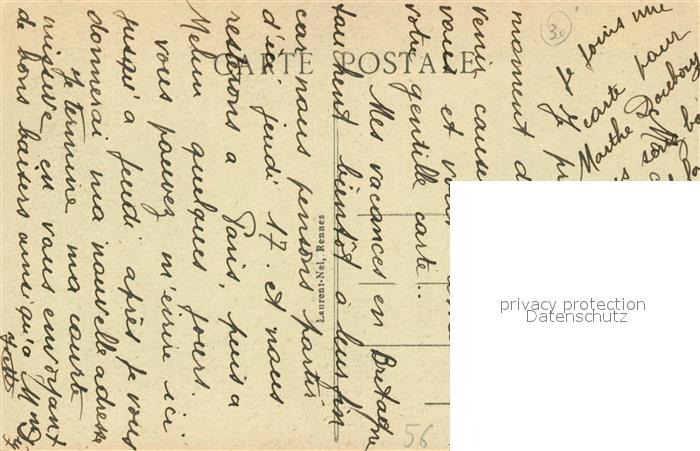 CARTE POSTALE
Laurent-Nel, Rennes
30
56
Je joins une
carte pour
Marthe
moment
venir cause
vous et
votre gentille carte.
Mes vacances en Bretagne
touchent bientôt à leur fin
car nous pensons partir
d'ici jeudi 17. et nous
resterons a Paris, puis a
Melun quelques jours.
vous pouvez m'écrire ici
jusqu'a jeudi après je vous
donnerai ma nouvelle adresse
Je termine ma courte
missive en vous envoyant
de bons baisers ainsi qu'a M
privacy protection
Datenschutz